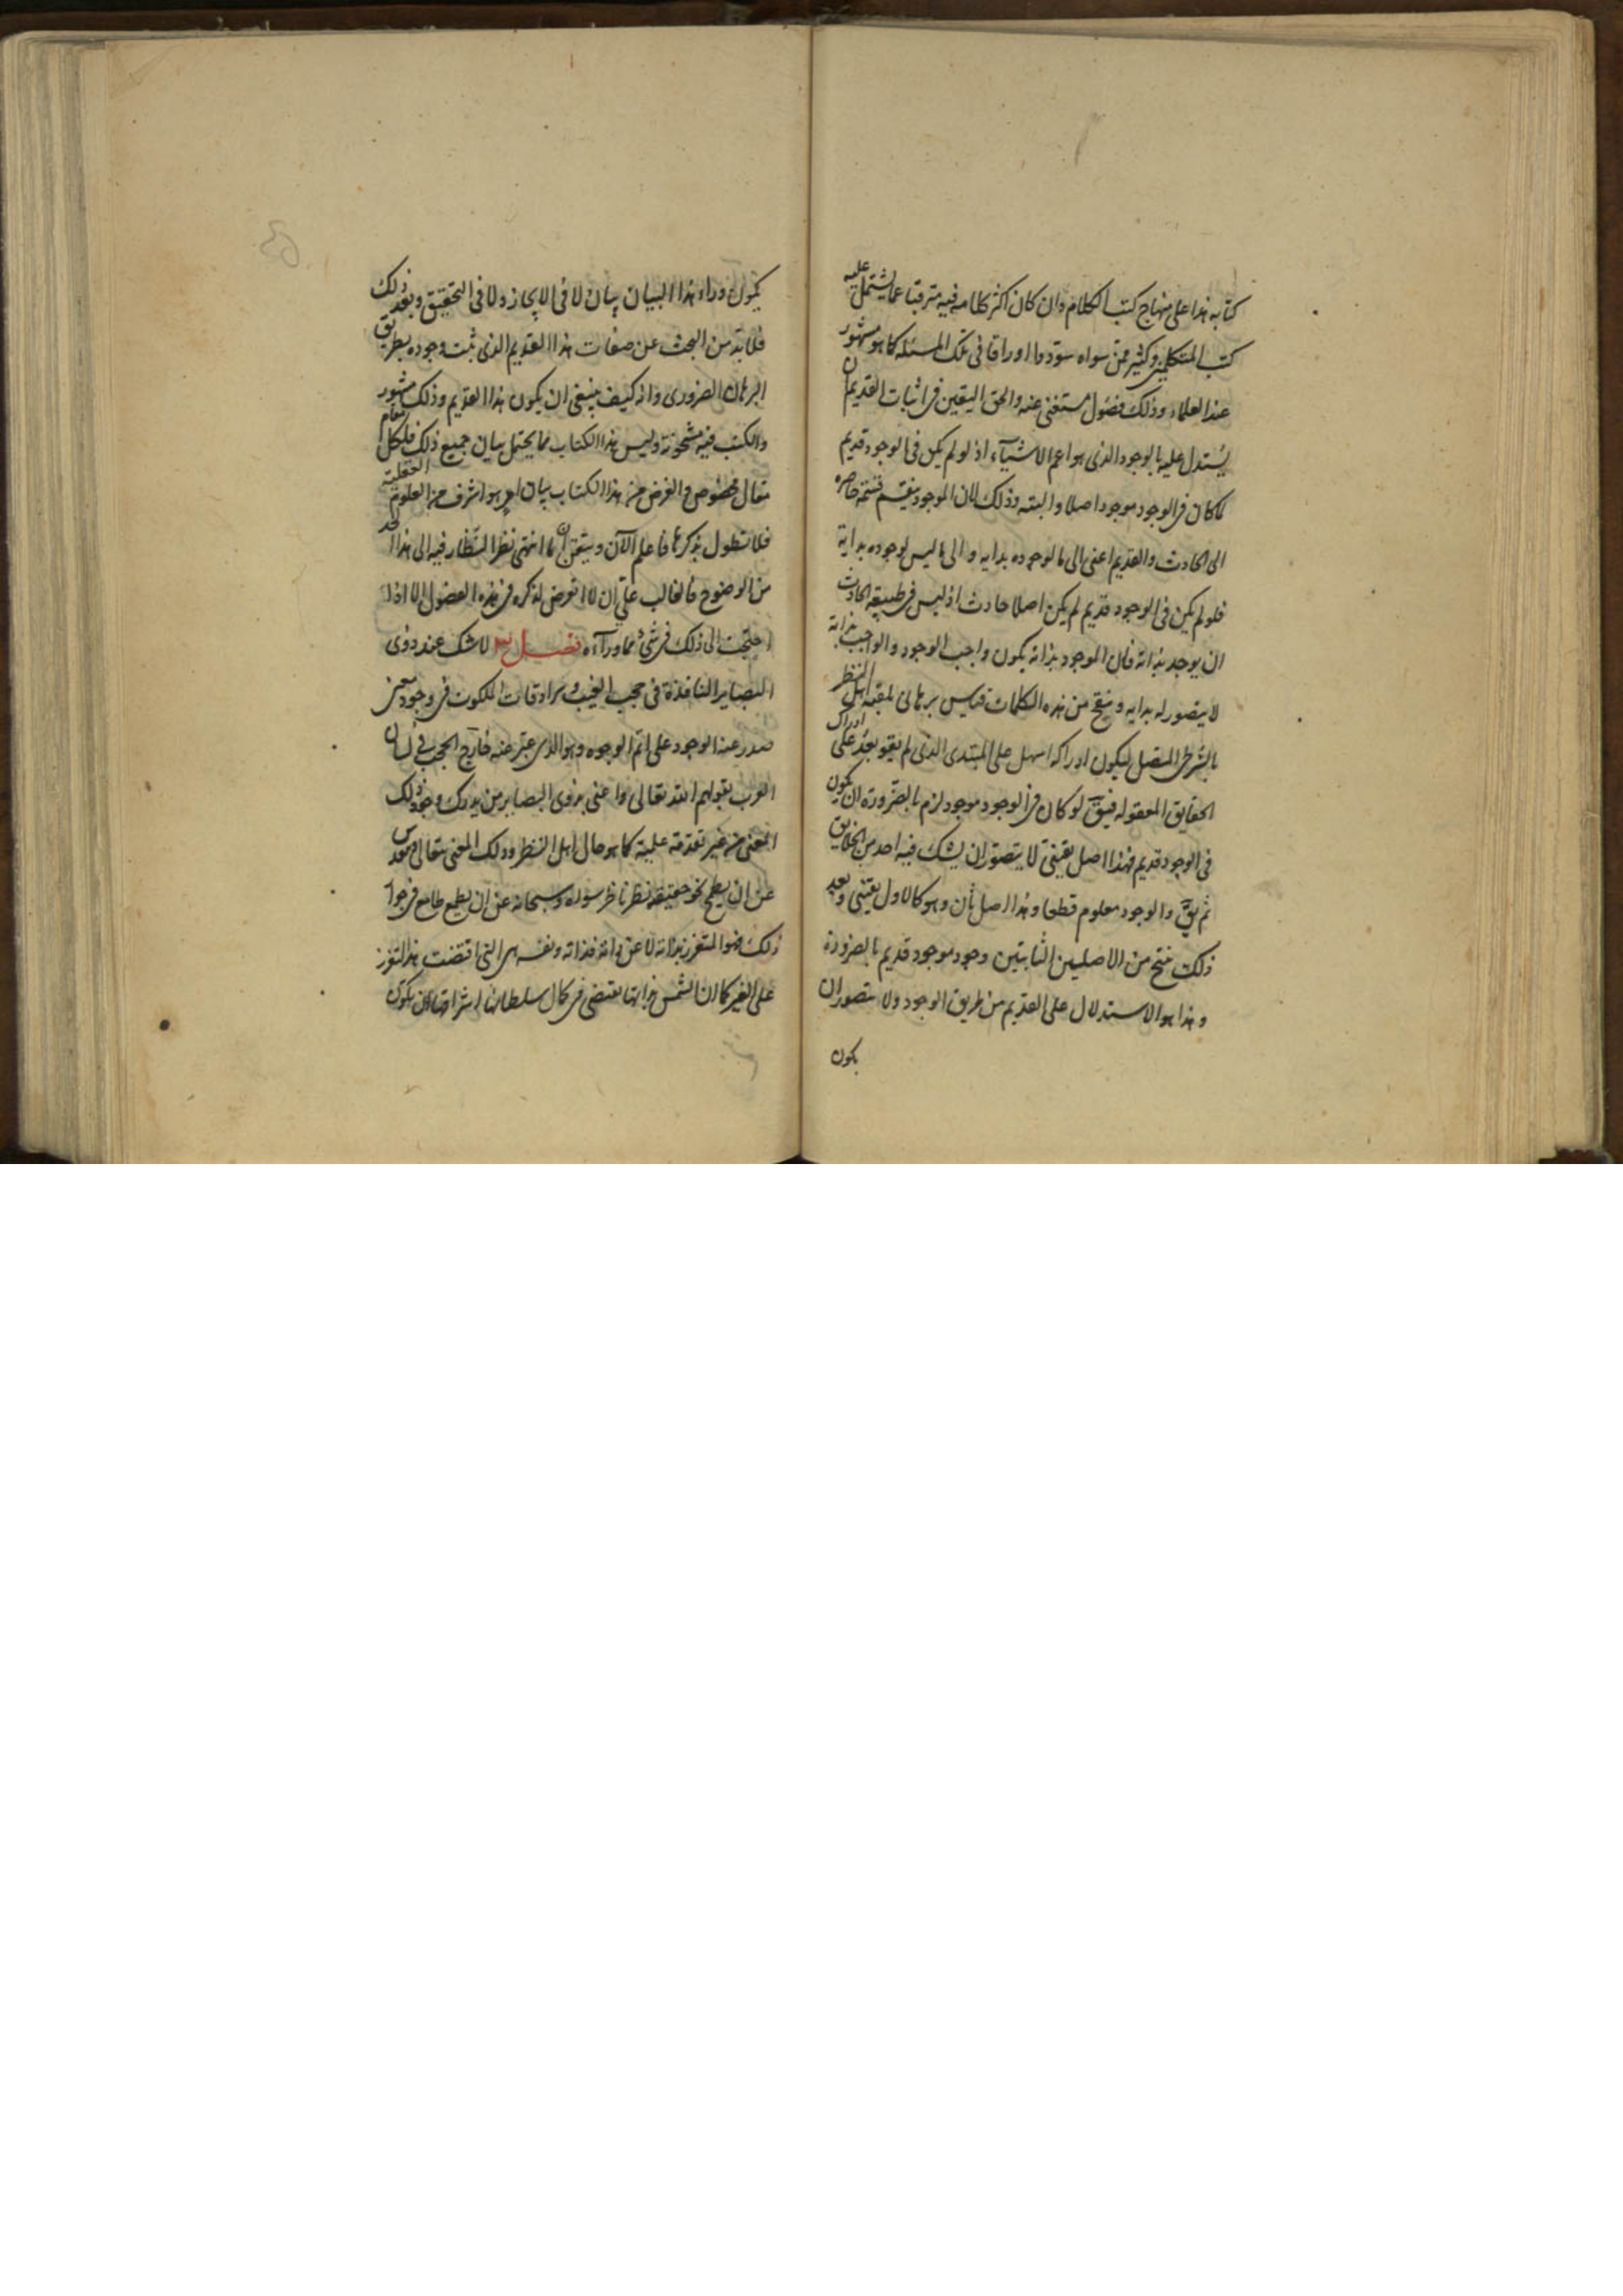 كتابه هذا على منهاج كتب الكلام وان كان اكثر كلامه فيه مترقيا عما يشتمل عليه
كتب المتكلمين وكثير ممن سواه سودوا اوراقا فى تلك المسئله كما هو مشهور
عند العلماء وذلك فضول مستغنى عنه والحق اليقين فى اثبات القديم ان
يستدل عليه بالوجود الذى هو اعم الاشياء اذ لو لم يكن فى الوجود قديم
لما كان فى الوجود موجود اصلا والبته وذلك لان الموجود ينقسم قسمة حاصره
الى الحادث والقديم اعنى الى ما لوجوده بدايه والى ما ليس لوجوده بداية
فلو لم يكن فى الوجود قديم لم يكن اصلا حادث اذ ليس فى طبيعة الحادث
ان يوجد بذاته فان الموجود بذاته يكون واجب الوجود والواجب بذاته
لا يتصور له بدايه وينتج من هذه الكلمات قياس برهانى يلقبه اهل النظر
بالشرطى المتصل ليكون ادراكه اسهل على المبتدى الذى لم يقو بعد على ادراك
الحقايق المعقوله فيق لو كان فى الوجود موجود لزم بالضرورة ان يكون
فى الوجود قديم فهذا اصل يقينى لا يتصور ان يشك فيه احد من الخلايق
ثم يق والوجود معلوم قطعا وهذا اصل ثان وهو كالاول يقينى وبعد
ذلك ينتج من الاصلين الثابتين وجود موجود قديم بالضرورة
وهذا هو الاستدلال على القديم من طريق الوجود ولا يتصور ان
يكون
يكون وراء هذا البيان بيان لا فى الايجاز ولا فى التحقيق وبعد ذلك
فلا بد من البحث عن صفات هذا القديم الذى ثبت وجوده بطريق
البرهان الضرورى وانه كيف ينبغى ان يكون هذا القديم وذلك مشهور
والكتب فيه مشحونة وليس هذا الكتاب مما يحتمل بيان جميع ذلك فلكل مقام
مقال مخصوص والغرض من هذا الكتاب بيان امر هو اشرف من العلوم العقلية
فلا نطول بذكرها فاعلم الآن وتيقن ان ما انتهى نظر النظار فيه الى هذا الحد
من الوضوح فالغالب على ان لا اتعرض لذكره فى هذه الفصول الا اذا
احتجت الى ذلك فى شئ مما وراءه فصل ٣ لا شك عند ذوى
البصاير النافذة فى حجب الغيب وسرادقات الملكوت فى وجود معنى
صدر عنه الوجود على اتم الوجوه وهو الذى عبر عنه خارج الحجب فى لسان
العرب بقولهم الله تعالى واعنى بذوى البصاير من يدرك وجود ذلك
المعنى من غير مقدمة علمية كما هو حال اهل النظر وذلك المعنى متعالى ومقدس
عن ان يطمح نحو حقيقته نظر ناظر سواه وسبحانه عن ان يطمع طامع فى جواز
ذلك فهو المتعزز بذاته لا عن ذاته فذاته ونفسه هى التى اقتضت هذا التعزز
على الغير كما ان الشمس بذاتها تقتضى فى كمال سلطانها اشراقها ان يكون